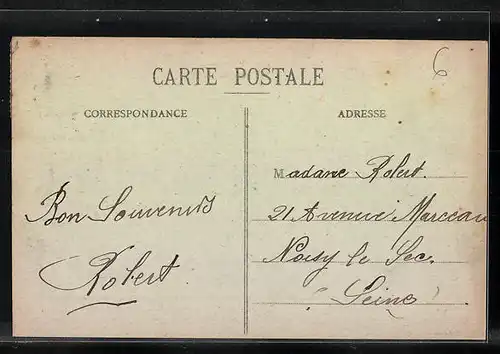 6
CARTE POSTALE
CORRESPONDANCE
Bon Souvenirs
Robert
ADRESSE
Madame Robert.
21 Avenue Marceau
Noisy le Sec.
(Seine)